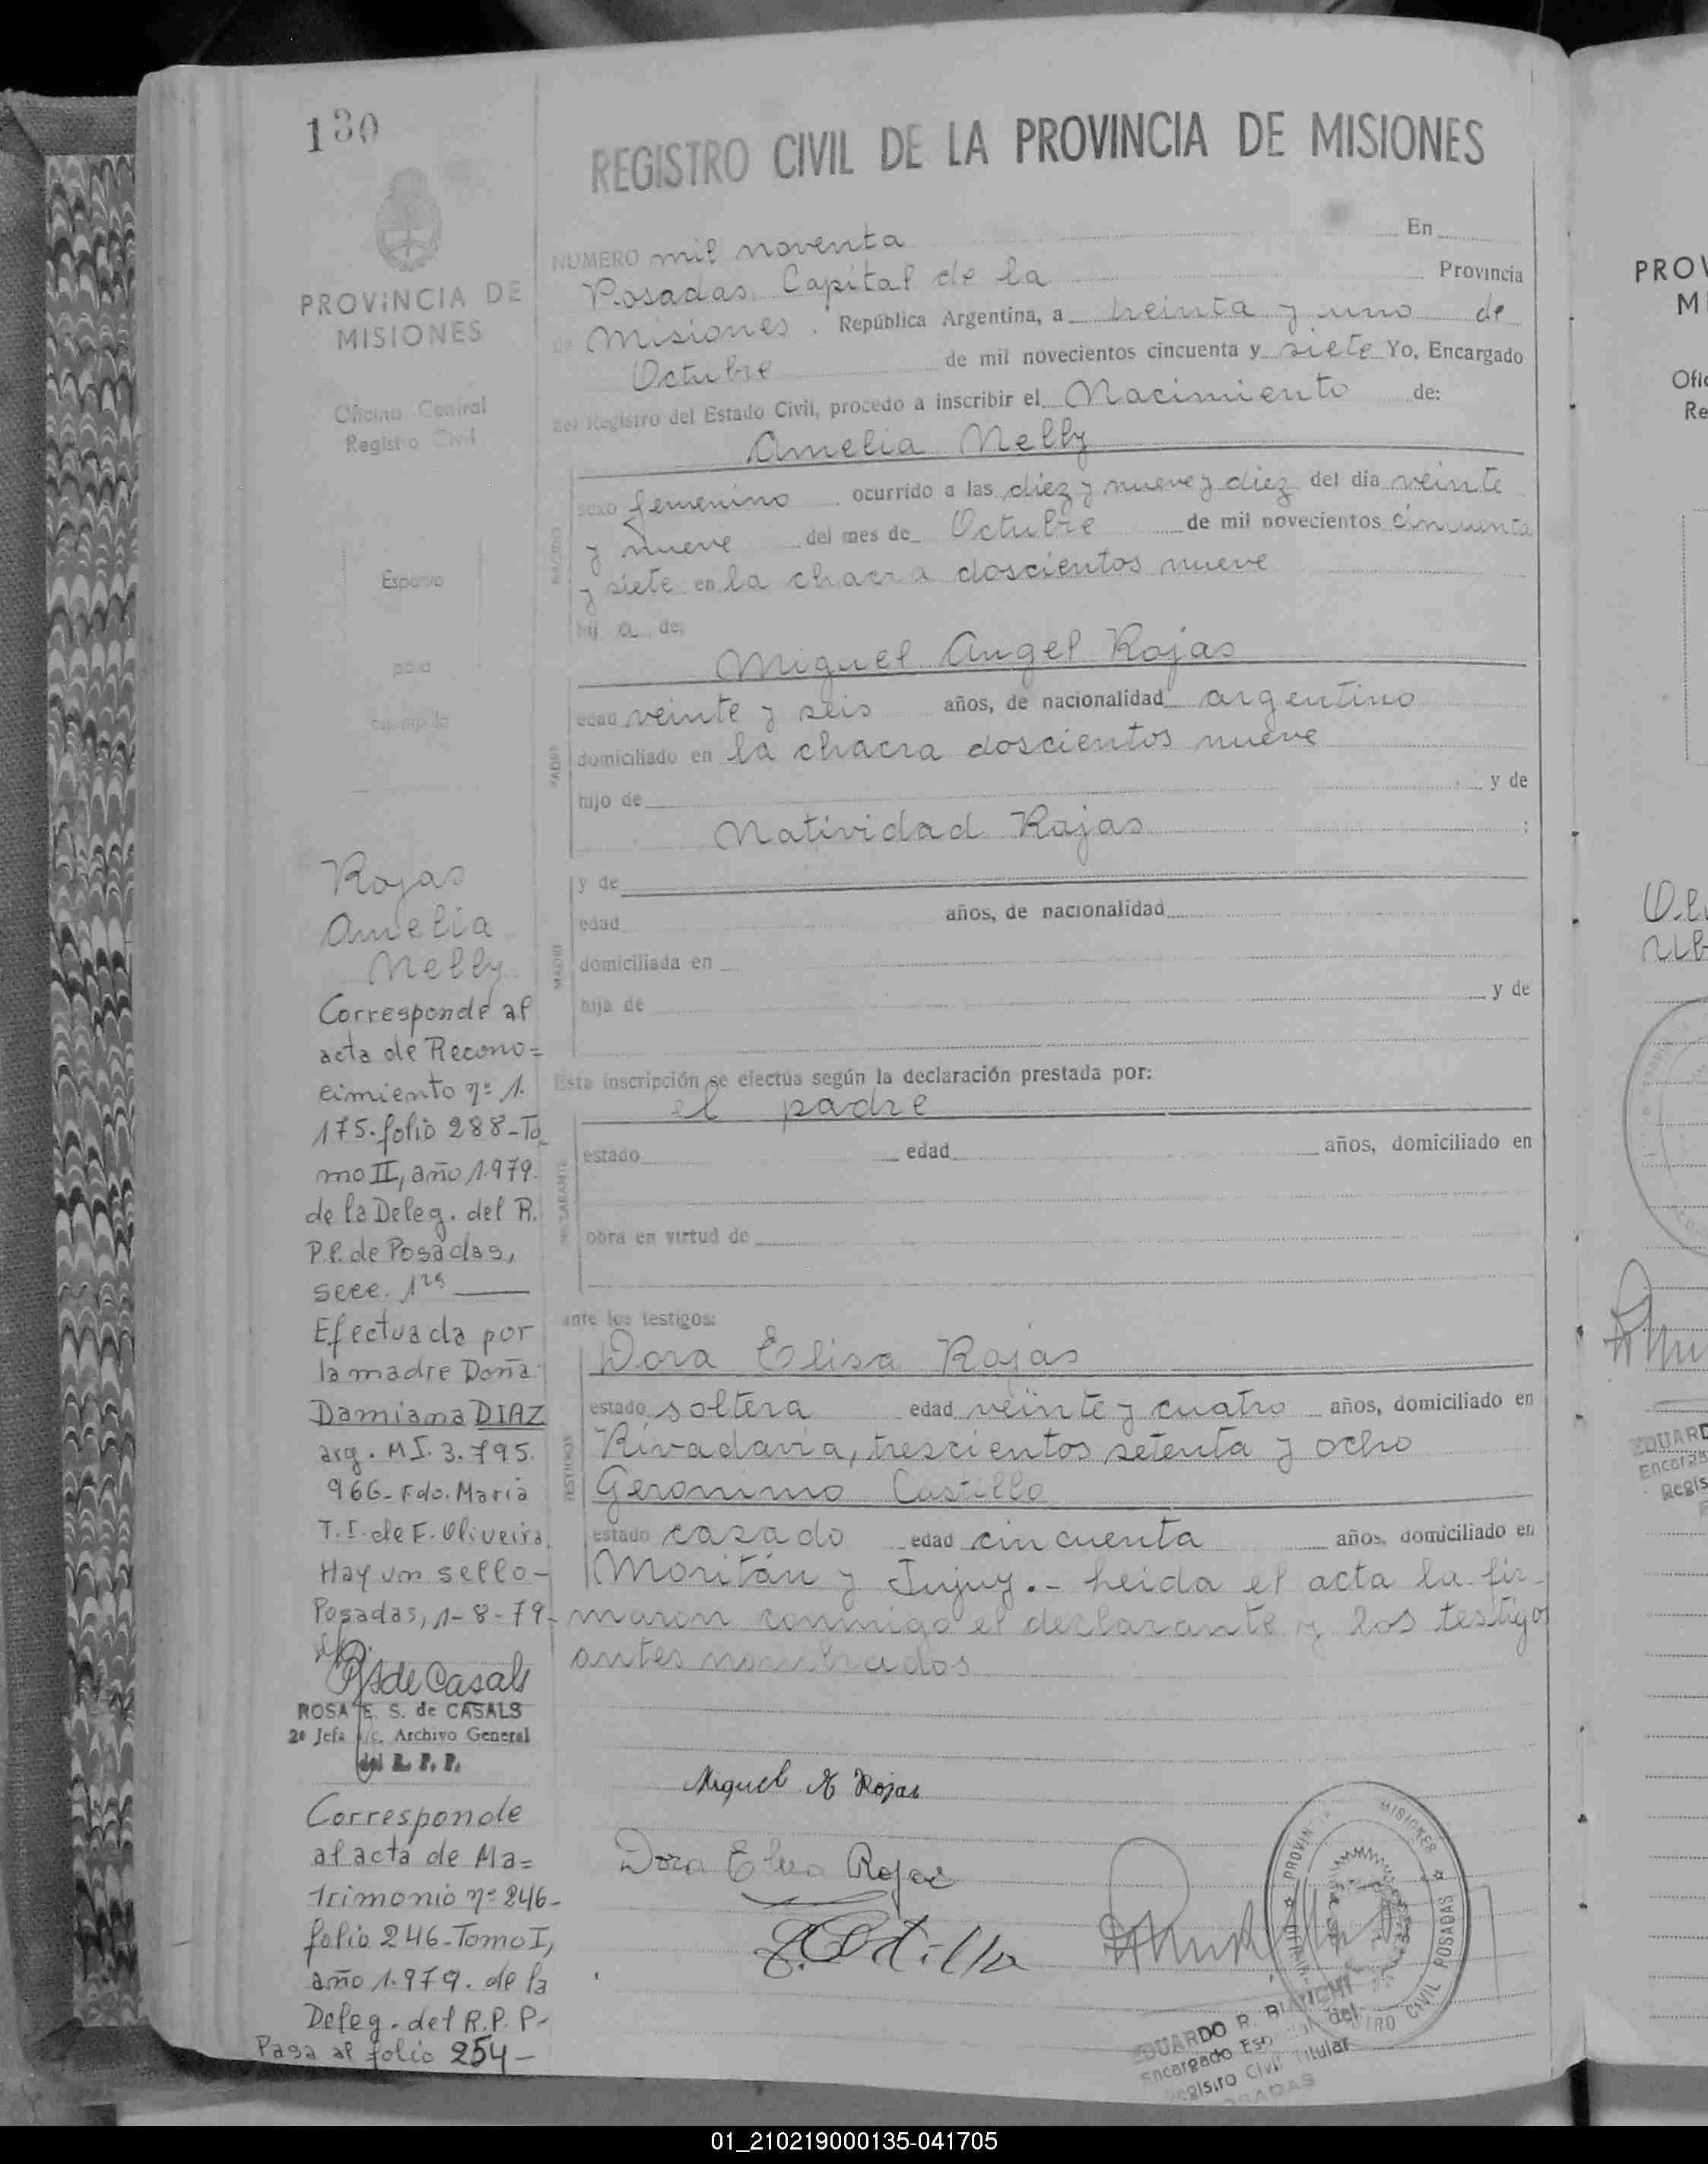 130
PROVINCIA DE
MISIONES
Oficina Central
Registro Civil
Espacio
para
Rojas
Amelia
Nelly
Corresponde al
acta de Recono=
cimiento nº 1.
175-folio 288-To
mo II, año 1.979.
de la Deleg. del R.
P.P. de Posadas,
secc. 1ra
Efectuada por
la madre Doña:
Damiana DIAZ
arg. M.I. 3.795.
966- Fdo. Maria
T. I. de F. Oliveira
Hay un sello-
Posadas, 1-8-79-
de Casals
ROSA E. S. de CASALS
2ª Jefa a/c. Archivo General
del R. P. P.
Corresponde
al acta de Ma=
trimonio nº 246-
folio 246-Tomo I,
año 1.979. de la
Deleg. del R.P.P-
Pasa al folio 254-
REGISTRO CIVIL DE LA PROVINCIA DE MISIONES
NUMERO mil noventa En
Posadas, Capital de la Provincia
de Misiones. República Argentina, a treinta y uno de
Octubre de mil novecientos cincuenta y siete Yo, Encargado
del Registro del Estado Civil, procedo a inscribir el Nacimiento de:
Amelia Nelly
sexo femenino ocurrido a las diez y nueve y diez del día veinte
y nueve del mes de Octubre de mil novecientos cincuenta
y siete en la chacra doscientos nueve
hij a de:
Miguel Angel Rojas
PADRE
edad veinte y seis años, de nacionalidad argentino
domiciliado en la chacra doscientos nueve
hijo de y de
Natividad Rojas ;
y de
MADRE
edad años, de nacionalidad
domiciliada en
hija de y de
Esta inscripción se efectúa según la declaración prestada por:
el padre
estado edad años, domiciliado en
obra en virtud de
ante los testigos:
Dora Elisa Rojas
TESTIGOS
estado soltera edad veinte y cuatro años, domiciliado en
Rivadavia, trescientos setenta y ocho
Geronimo Castillo
estado casado edad cincuenta años, domiciliado en
Moritán y Jujuy.- Leida el acta la fir-
maron conmigo el declarante y los testigos
antes nombrados
Miguel A Rojas
Dora Elisa Rojas
G. Castillo
PROVINCIA MISIONES
REGISTRO CIVIL POSADAS
EDUARDO R. BIANCHI
Encargado Especial del
Registro Civil Titular
POSADAS
PROV
M
Ofic
Re
EDUARD
Encarga
Regis
01_210219000135-041705